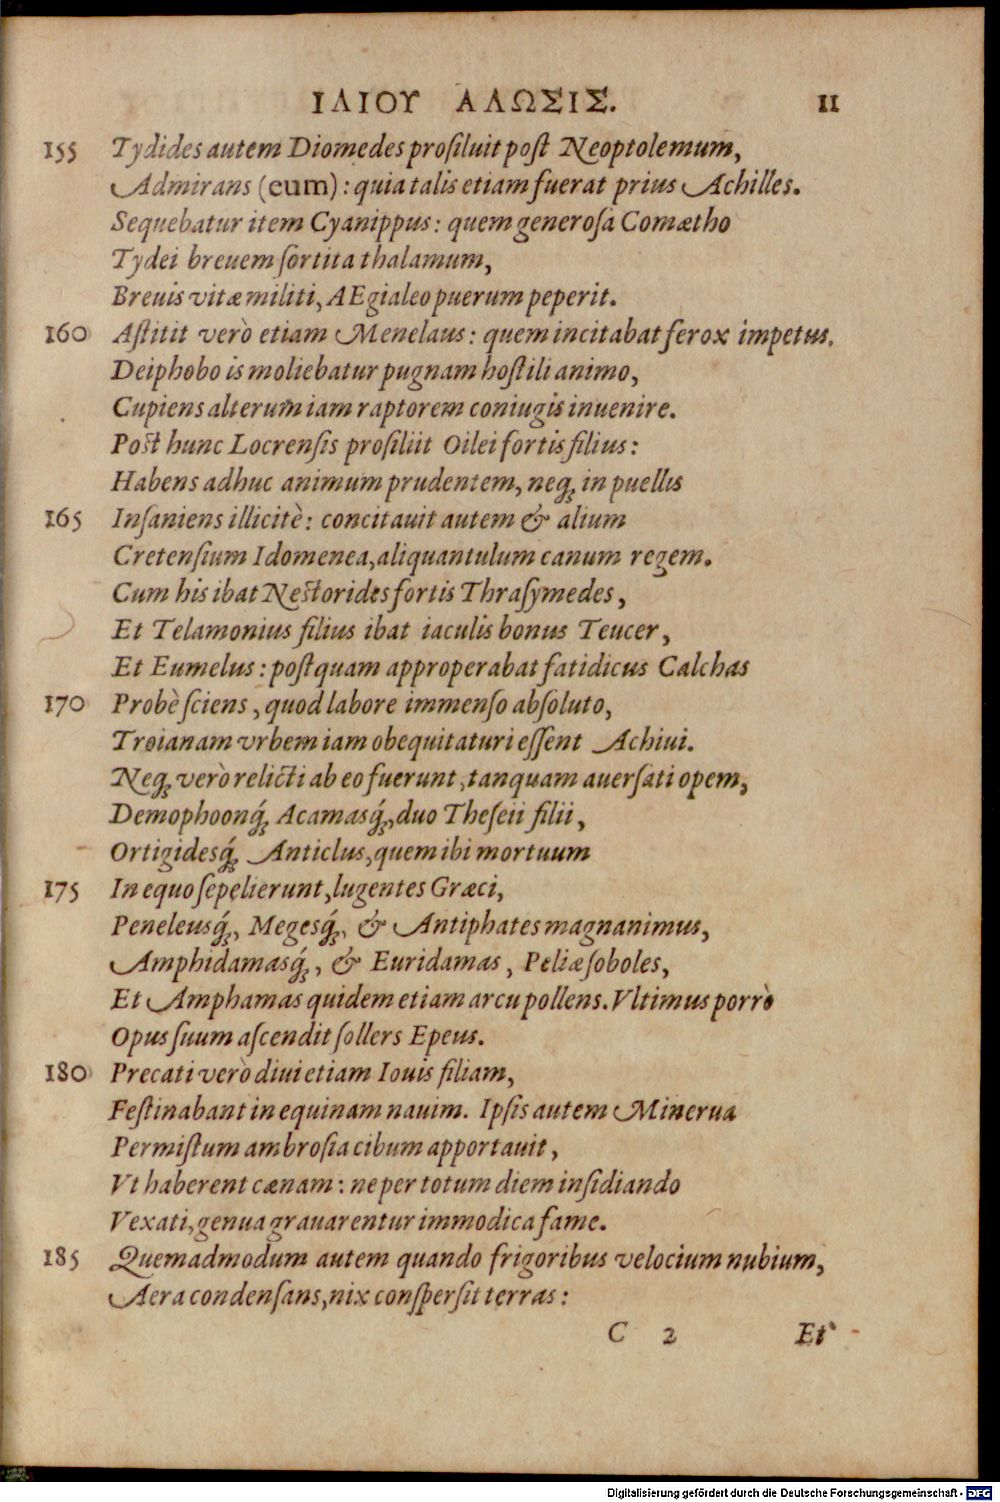 ΙΛΙΟΥ ΑΛΩΣΙΣ. 11
155 Tydides autem Diomedes proſiluit poſt Neoptolemum,
Admirans (eum): quia talis etiam fuerat prius Achilles.
Sequebatur item Cyanippus: quem generoſa Comætho
Tydei breuem ſortita thalamum,
Breuis vitæ militi, AEgialeo puerum peperit.
160 Aſtitit verò etiam Menelaus: quem incitabat ferox impetus.
Deiphobo is moliebatur pugnam hoſtili animo,
Cupiens alterum iam raptorem coniugis inuenire.
Poſt hunc Locrenſis proſiliit Oilei fortis filius:
Habens adhuc animum prudentem, neq́ue in puellis
165 Inſaniens illicitè: concitauit autem & alium
Cretenſium Idomenea, aliquantulum canum regem.
Cum his ibat Neſtorides fortis Thraſymedes,
Et Telamonius filius ibat iaculis bonus Teucer,
Et Eumelus: poſtquam approperabat fatidicus Calchas
170 Probè ſciens, quod labore immenſo abſoluto,
Troianam vrbem iam obequitaturi eſſent Achiui.
Neq; verò relicti ab eo fuerunt, tanquam auerſati opem,
Demophoonq́;, Acamasq́;, duo Theſeii filii,
Ortigidesq́; Anticlus, quem ibi mortuum
175 In equo ſepelierunt, lugentes Græci,
Peneleusq́;, Megesq́;, & Antiphates magnanimus,
Amphidamasq́;, & Euridamas, Peliæ ſoboles,
Et Amphamas quidem etiam arcu pollens. Vltimus porrò
Opus ſuum aſcendit ſollers Epeus.
180 Precati verò diui etiam Iouis filiam,
Feſtinabant in equinam nauim. Ipſis autem Minerua
Permiſtum ambroſia cibum apportauit,
Vt haberent cænam: ne per totum diem inſidiando
Vexati, genua grauarentur immodica fame.
185 Quemadmodum autem quando frigoribus velocium nubium,
Aera condenſans, nix conſperſit terras:
C 2 Et
Digitalisierung gefördert durch die Deutsche Forschungsgemeinschaft - DFG